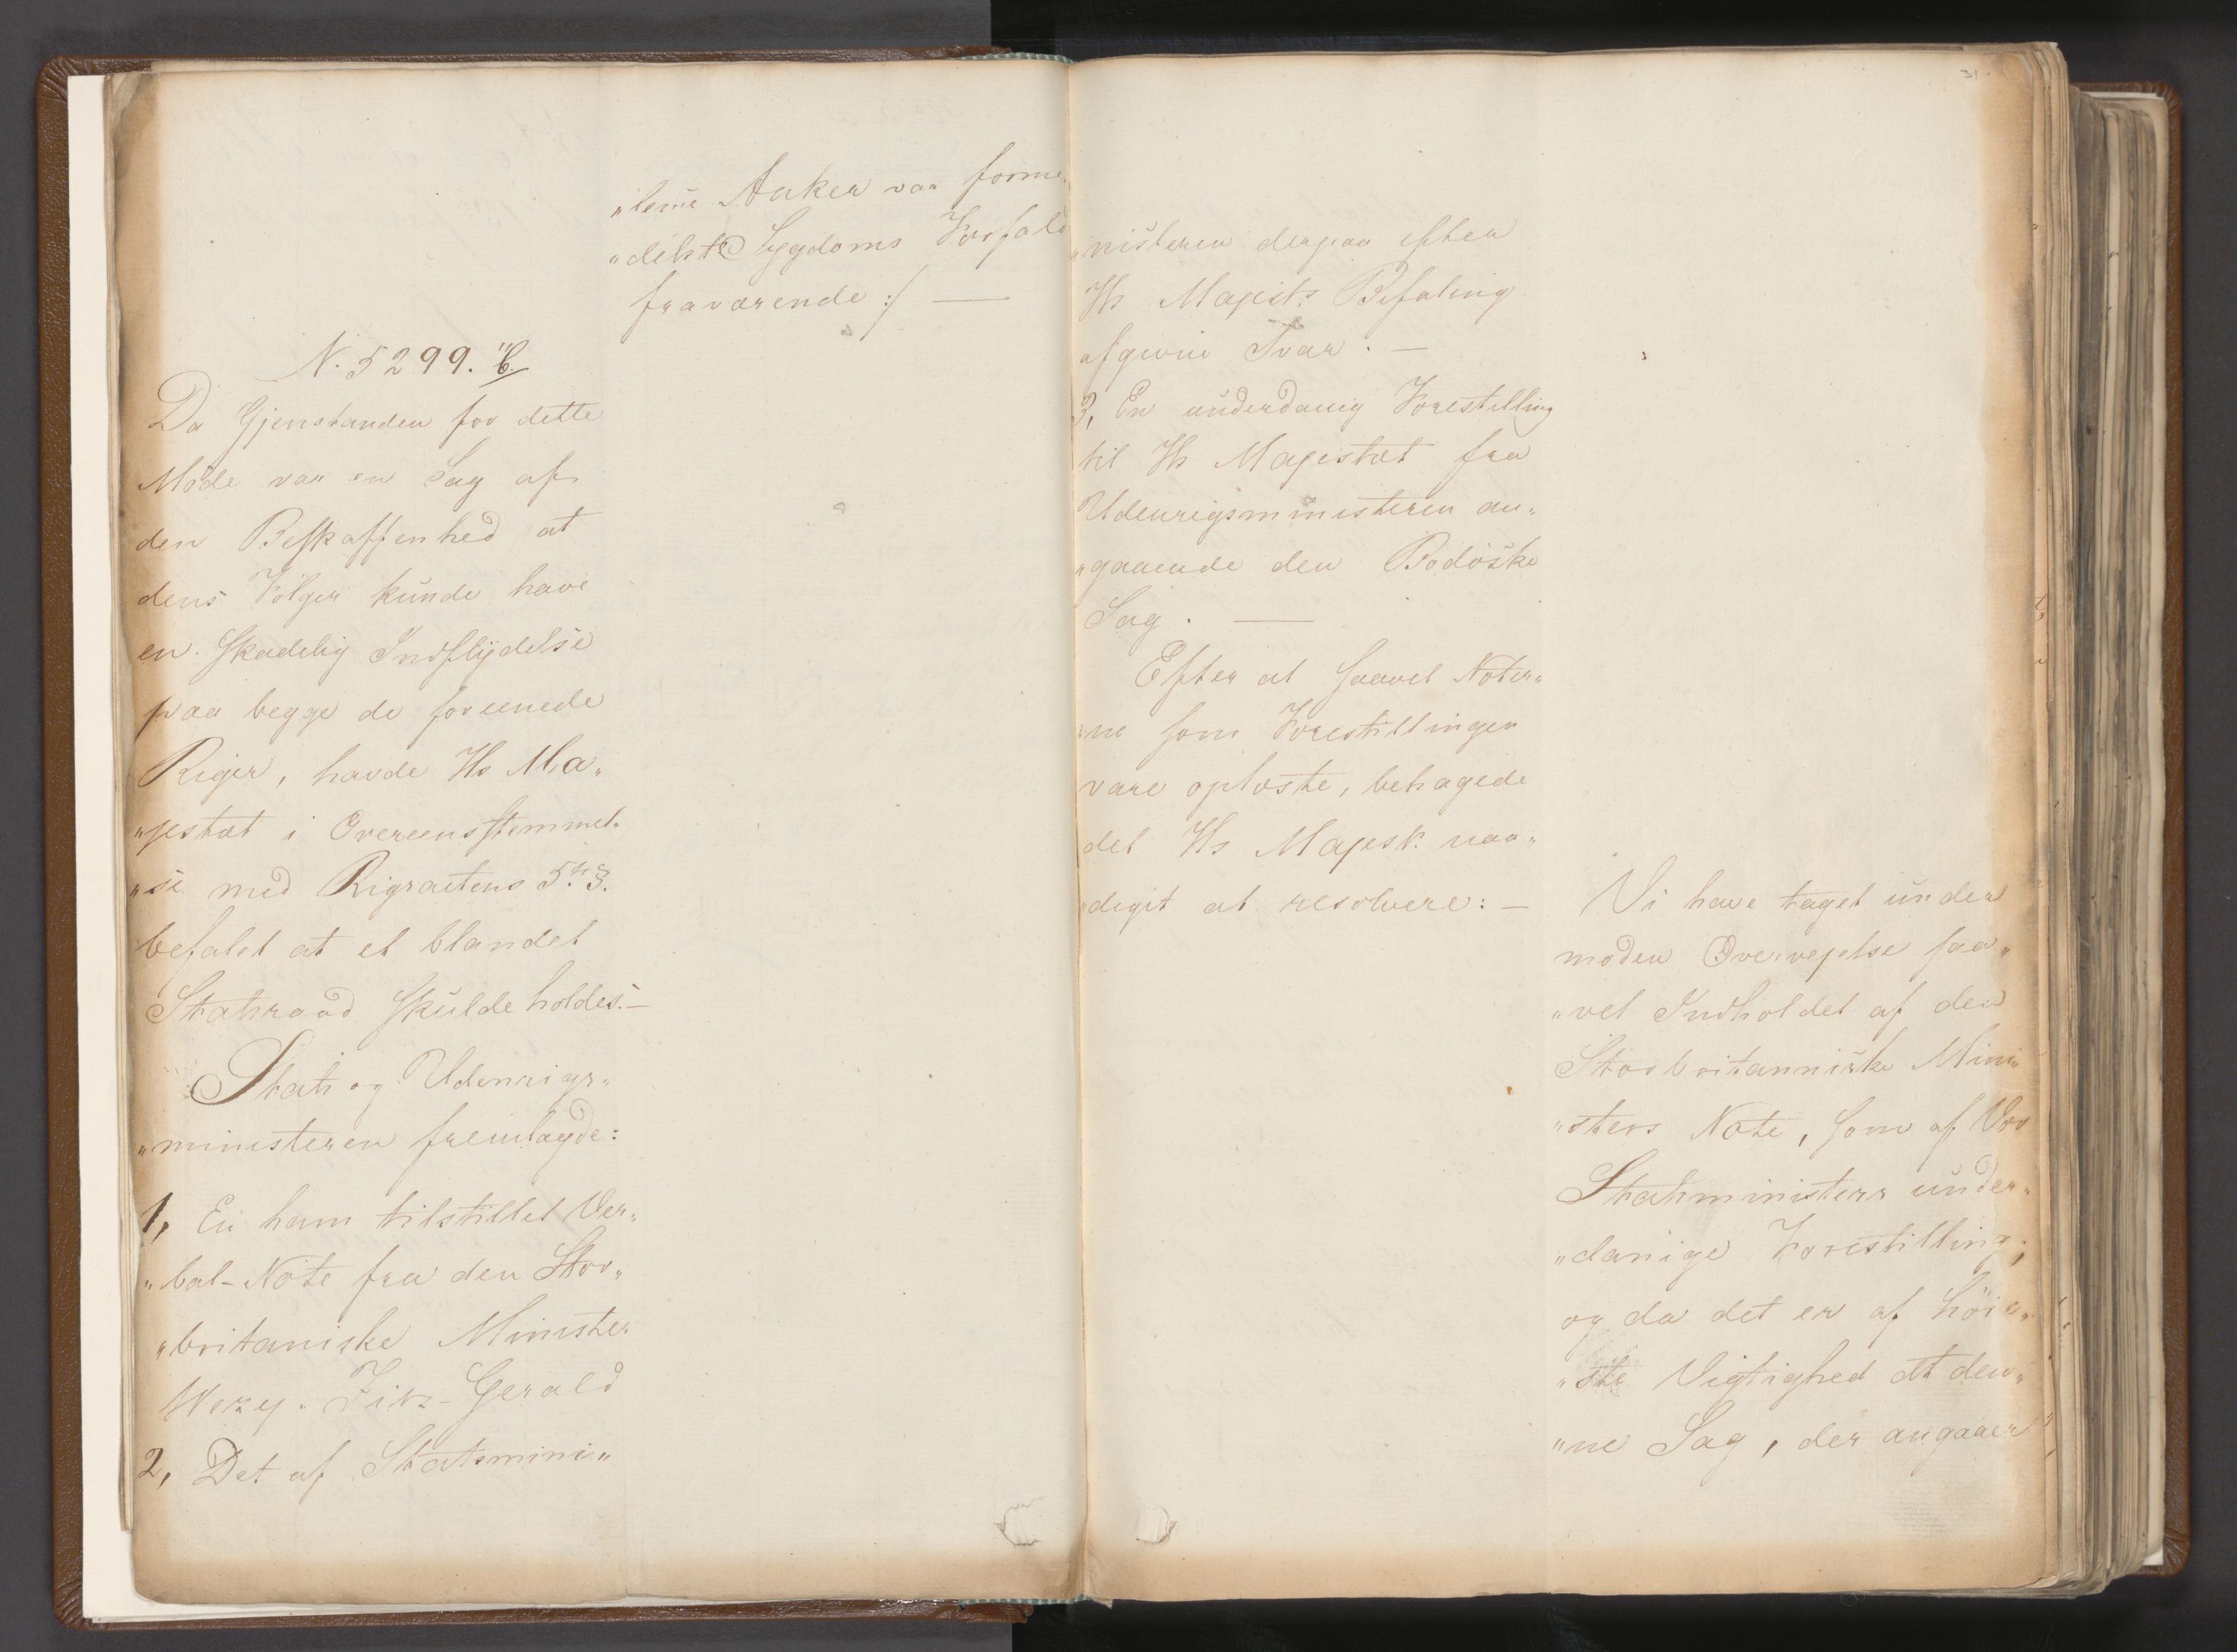 „lenie Anker var forme„
„delst Sygdoms Forfald
fraværende :/ —
N. 5299. "b.
Da Gjenstanden for dette
Møde var en Sag af
den Beskaffenhed at
dens Følger kunde have
en skadelig Indflydelse
paa begge de foreenede
Riger, havde Hs Ma„
„jestæt i Overeensstemmel„
„se med Rigsactens 5te §.
befalet at et blandet
Statsraad skulde holdes. —
Stats og Udenrigs„
„ministeren fremlagde:
1, En ham tilstillet Ver„
„bal-Note fra den Stor„
„britaniske Minister
Fitz-Gerald
2, Det af Statsmini„
31
„nisteren derpaa efter
Hs Majests Befaling
afgivne Svar. —
3, En underdanig Forestilling
til Hs Majestæt fra
Udenrigsministeren an„
„gaaende den Bodøske
Sag. —
Efter at saavel Noter„
„ne som Forestillingen
vare oplæste, behagede
det Hs Majest. naa„
„digst at resolvere: —
Vi have taget under
moden Overvejelse saa„
„vel Indholdet af den
Storbritanniske Mini„
„sters Note, som af Vor
Statsministers under„
„danige Forestilling;
og da det er af høie„
„ste Vigtighed at den„
„ne Sag, der angaaer